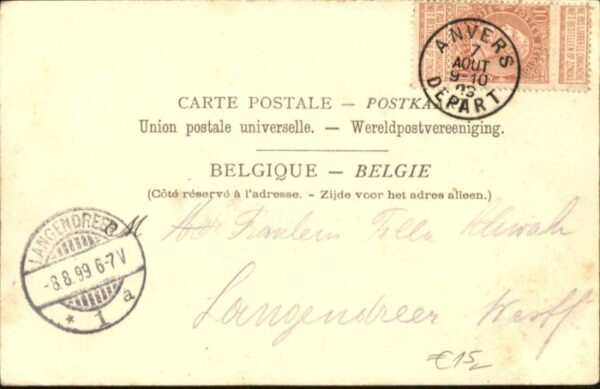 ANVERS
7
AOUT
9-10
DEPART
10
CARTE POSTALE — POSTKA
Union postale universelle. — Wereldpostvereeniging.
BELGIQUE — BELGIE
(Côté réservé à l'adresse. - Zijde voor het adres alleen.)
LANGENDREER
-8.8.99 6-7V
* 1 a
M Fraulein Tilla
Langendreer Westf
€15,-